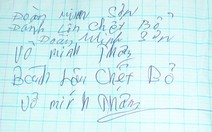 Đoàn Minh Sơn
Đánh Lộn Chết Bỏ
Đoàn Minh Sơn
Võ minh Nhân
Đánh Lộn Chết Bỏ
Võ minh Nhân